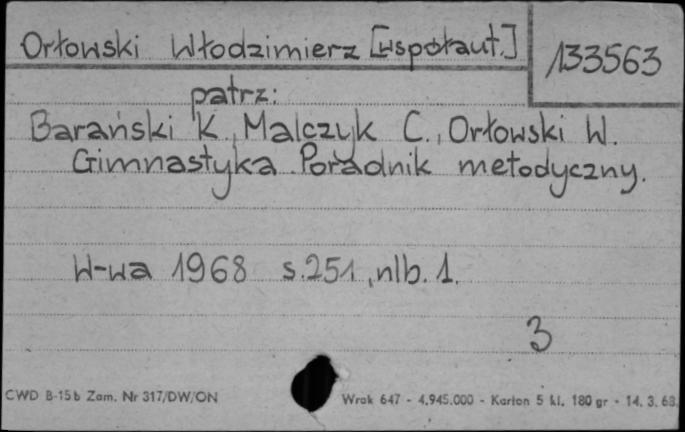 Orłowski Włodzimierz [współaut.]
133563
patrz:
Barański K., Malczyk C., Orłowski W.
Gimnastyka. Poradnik metodyczny.
W-wa 1968 s.251, nlb. 1.
3
CWD B-15b Zam. Nr 317/DW/ON
Wrak 647 - 4.945.000 - Karton 5 kl. 180 gr - 14. 3. 68.